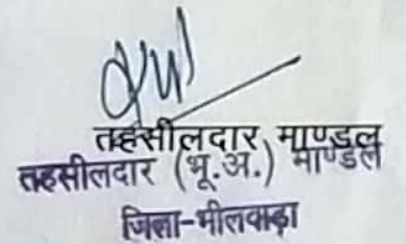 तहसीलदार माण्डल
तहसीलदार (भू.अ.) माण्डल
जिला-भीलवाड़ा